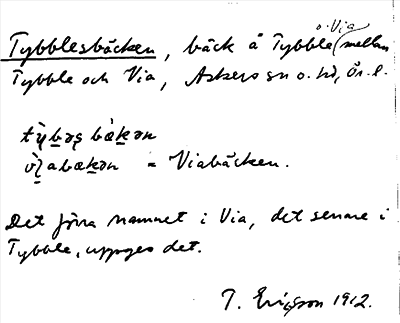 Tybblesbäcken, bäck å Tybble o. Via (mellan
Tybble och Via, Askers sn o. hd, Ör. l.
tỳbəs bækən
vìabækən = Viabäcken.
Det förra namnet i Via, det senare i
Tybble, uppges det.
T. Ericsson 1912.